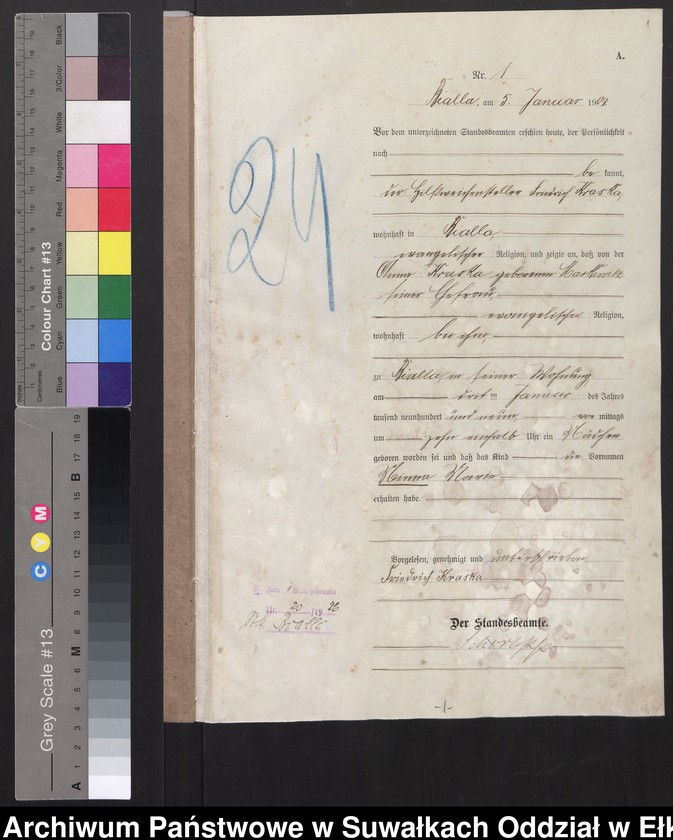 1
A.
Nr. 1
Bialla, am 5. Januar 1909
Vor dem unterzeichneten Standesbeamten erschien heute, der Persönlichkeit
nach
be kannt,
der Hilfsweichensteller Friedrich Kraska,
wohnhaft in Bialla
evangelischer Religion, und zeigte an, daß von der
Kraska geborenen
seiner Ehefrau,
evangelischer Religion,
wohnhaft bei ihm,
zu Bialla in seiner Wohnung
am drit ten Januar des Jahres
tausend neunhundert und neun vor mittags
um zehn einhalb Uhr ein Mädchen
geboren worden sei und daß das Kind die Vornamen
Minna Marie
erhalten habe.
Vorgelesen, genehmigt und unterschrieben
Friedrich Kraska
Der Standesbeamte.
24
Nr. 20 /19 26
Bialla
-1-
Colour Chart #13
Blue Cyan Green Yellow Red Magenta White 3/Color Black
Inches
Centimetres
Grey Scale #13
C Y M
A 1 2 3 4 5 6 M 8 9 10 11 12 13 14 15 B 17 18 19
Archiwum Państwowe w Suwałkach Oddział w Ełk